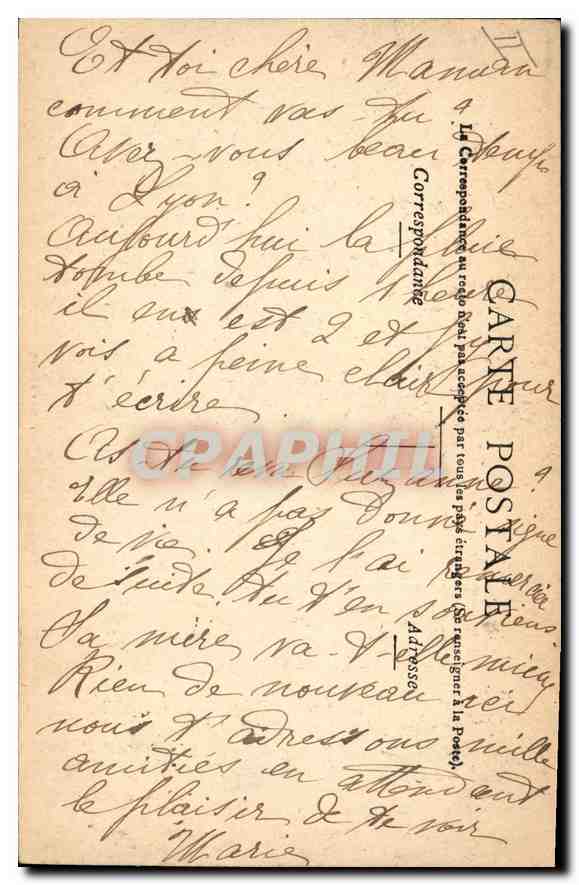 11
Et toi chère Maman
comment vas-tu ?
Avez-vous beau temps
à Lyon ?
Aujourd'hui la pluie
tombe depuis 1 heure
il en est 2 et j'y
vois a peine clair pour
t'écrire.
As-tu vu Suzanne ?
Elle n'a pas donné signe
de vie. Je l'ai remercié
de suite. tu t'en souviens
Sa mère va-t-elle mieux
Rien de nouveau ici
nous t'adressons mille
amitiés en attendant
le plaisir de te voir
Marie
CARTE POSTALE
La Correspondance au recto n'est pas acceptée par tous les pays étrangers (Se renseigner à la Poste).
Correspondance
Adresse
CPAPHIL